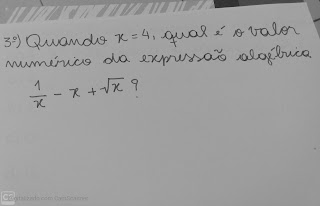 3º) Quando x = 4, qual é o valor
numérico da expressão algébrica
1/x - x + √x ?